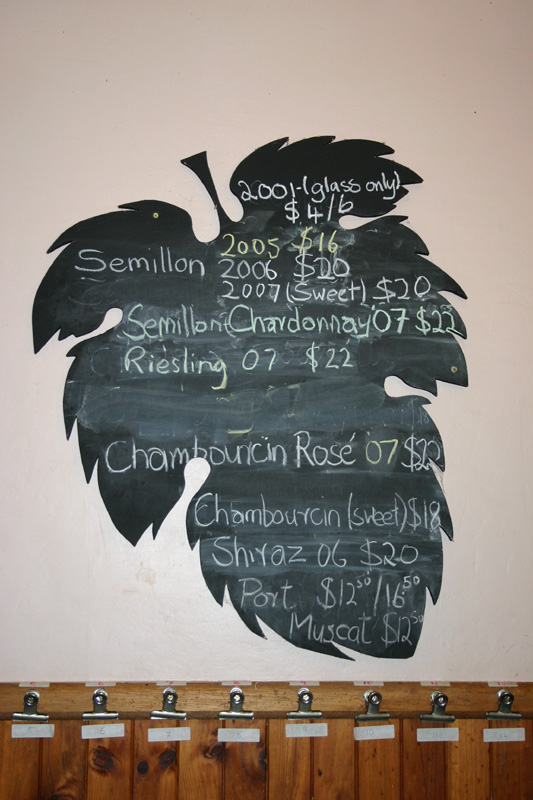 2001-(glass only)
$4/6
2005 $16
Semillon 2006 $20
2007 (Sweet) $20
Semillon Chardonnay '07 $22
Riesling 07 $22
Chambourcin Rosé '07 $20
Chambourcin (sweet) $18
Shiraz 06 $20
Port $12.50/16.50
Muscat $12.50
6 7 8 9 10